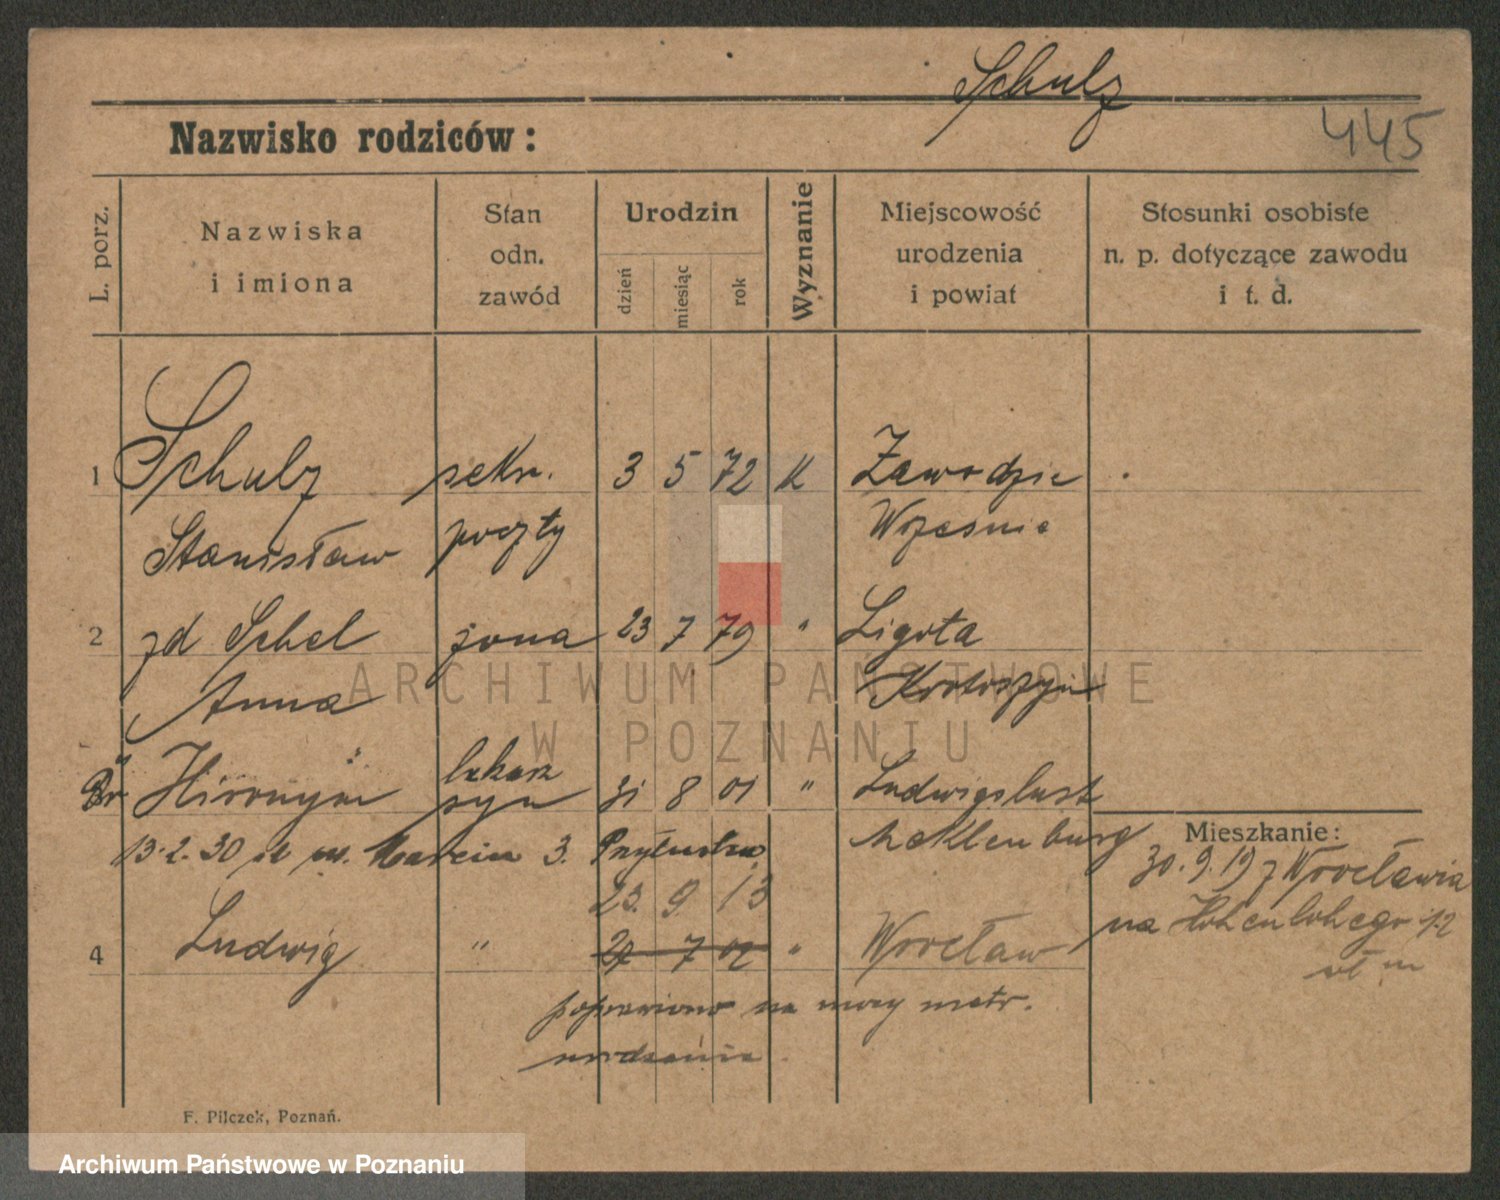 Schulz
445
Nazwisko rodziców:
L. porz.
Nazwiska
i imiona
Stan
odn.
zawód
Urodzin
dzień
miesiąc
rok
Wyznanie
Miejscowość
urodzenia
i powiat
Stosunki osobiste
n. p. dotyczące zawodu
i t. d.
1 Schulz sekr. 3 5 72 K Zawodzie
Stanisław poczty Wrzesnia
2 zd Schel żona 23 7 79 " Ligota
Anna Krotoszyn
lekarz
Dr Hieronym syn 31 8 01 " Ludwigslust
13.2.30 Marcin 3. Meklenburg
Mieszkanie:
30.9.19 z Wrocławia
23. 9. 13
na Hohenlohego 12
4 Ludwig " 7 02 " Wrocław
poprawiono na mocy metr.
urodzenia.
F. Pilczek, Poznań.
ARCHIWUM PAŃSTWOWE
W POZNANIU
Archiwum Państwowe w Poznaniu